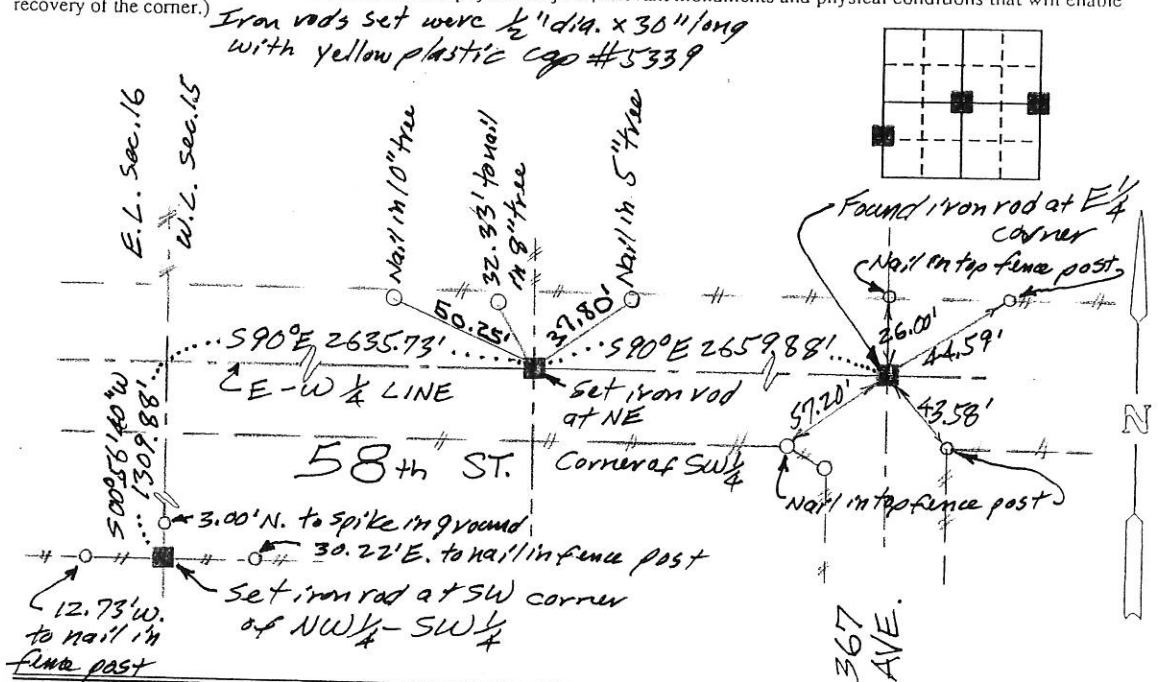 recovery of the corner.)
monuments and physical conditions that will enable
Iron rods set were 1/2" dia. x 30" long
with yellow plastic cap #5339
E.L. Sec. 16
W.L. Sec. 15
Nail in 10" tree
32.33' to nail
in 8" tree
Nail in 5" tree
Found iron rod at E 1/4
corner
Nail in top fence post
50.25'
37.80'
26.00'
44.59'
S90°E 2635.73'
S90°E 2659.88'
E-W 1/4 LINE
Set iron rod
at NE
Corner of SW 1/4
57.20'
43.58'
N
58th ST.
Nail in top fence post
S00°56'40"W
1309.88'
3.00' N. to spike in ground
30.22' E. to nail in fence post
Set iron rod at SW corner
of NW 1/4 - SW 1/4
12.73' W.
to nail in
fence post
367
AVE.